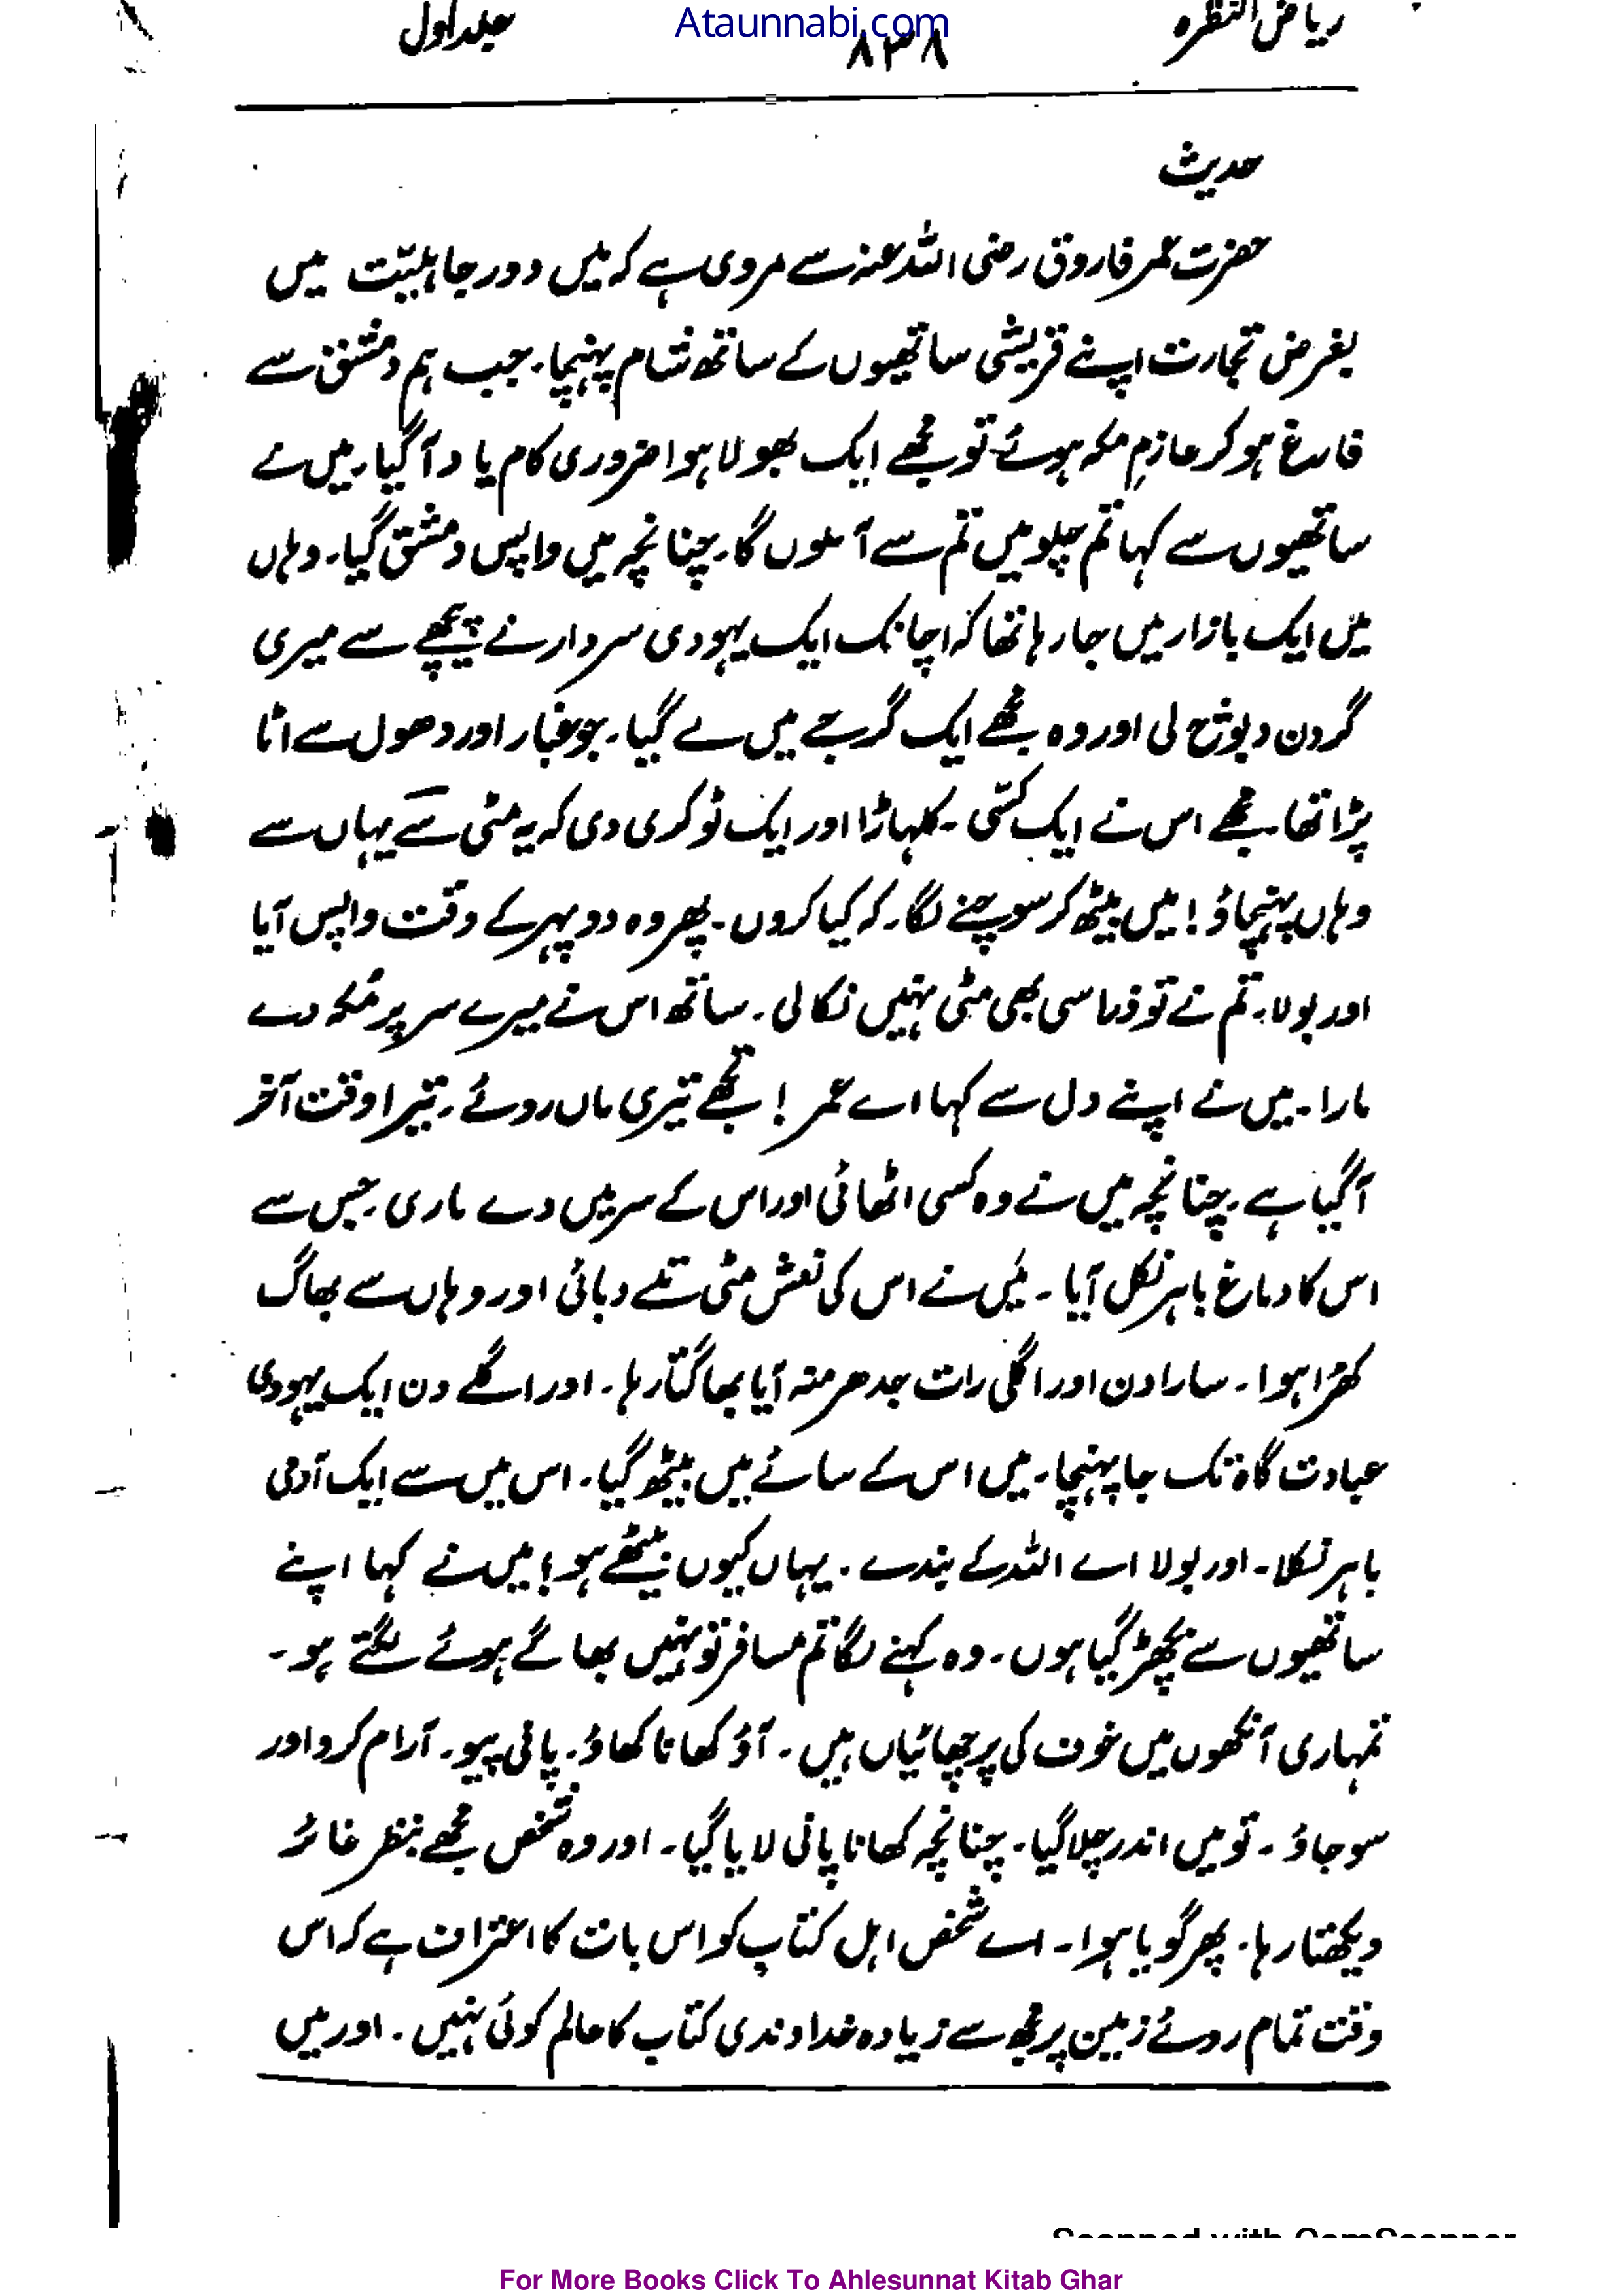 ریاض النضرہ
Ataunnabi.com
جلد اول
۸۳۸
حدیث
حضرت عمر فاروق رضی اللہ عنہ سے مروی ہے کہ میں دور جاہلیّت میں
بغرض تجارت اپنے قریشی ساتھیوں کے ساتھ شام پہنچا۔ جب ہم دمشق سے
فارغ ہو کر عازمِ مکہ ہوئے۔ تو مجھے ایک بھولا ہوا ضروری کام یاد آ گیا۔ میں نے
ساتھیوں سے کہا تم چلو میں تم سے آ ملوں گا۔ چنانچہ میں واپس دمشق گیا۔ وہاں
میں ایک بازار میں جا رہا تھا کہ اچانک ایک یہودی سردار نے پیچھے سے میری
گردن دبوچ لی اور وہ مجھے ایک گرجے میں لے گیا۔ جو غبار اور دھول سے اٹا
پڑا تھا۔ مجھے اس نے ایک کسّی ۔ کلہاڑا اور ایک ٹوکری دی کہ یہ مٹی سے یہاں سے
وہاں پہنچاؤ! میں بیٹھ کر سوچنے لگا۔ کہ کیا کروں۔ پھر وہ دوپہر کے وقت واپس آیا
اور بولا۔ تم نے تو ذرا سی بھی مٹی نہیں نکالی۔ ساتھ اس نے میرے سر پر مُکہ دے
مارا۔ میں نے اپنے دل سے کہا اے عمر! تجھے تیری ماں روئے۔ تیرا وقت آخر
آگیا ہے۔ چنانچہ میں نے وہ کسی اٹھائی اور اس کے سر میں دے ماری۔ جس سے
اس کا دماغ باہر نکل آیا۔ میں نے اس کی نعش مٹی تلے دبائی اور وہاں سے بھاگ
کھڑا ہوا۔ سارا دن اور اگلی رات جدھر منہ آیا بھاگتا رہا۔ اور اگلے دن ایک یہودی
عبادت گاہ تک جا پہنچا۔ میں اس کے سائے میں بیٹھ گیا۔ اس میں سے ایک آدمی
باہر نکلا۔ اور بولا اے اللہ کے بندے۔ یہاں کیوں بیٹھے ہو؟ میں نے کہا اپنے
ساتھیوں سے بچھڑ گیا ہوں۔ وہ کہنے لگا تم مسافر تو نہیں بھاگے ہوئے لگتے ہو۔
تمہاری آنکھوں میں خوف کی پرچھائیاں ہیں۔ آؤ کھانا کھاؤ۔ پانی پیو۔ آرام کرو اور
سو جاؤ۔ تو میں اندر چلا گیا۔ چنانچہ کھانا پانی لایا گیا۔ اور وہ شخص مجھے بنظر غائر
دیکھتا رہا۔ پھر گویا ہوا۔ اے شخص اہل کتاب کو اس بات کا اعتراف ہے کہ اس
وقت تمام روئے زمین پر مجھ سے زیادہ خداوندی کتاب کا عالم کوئی نہیں۔ اور میں
Scanned with CamScanner
For More Books Click To Ahlesunnat Kitab Ghar